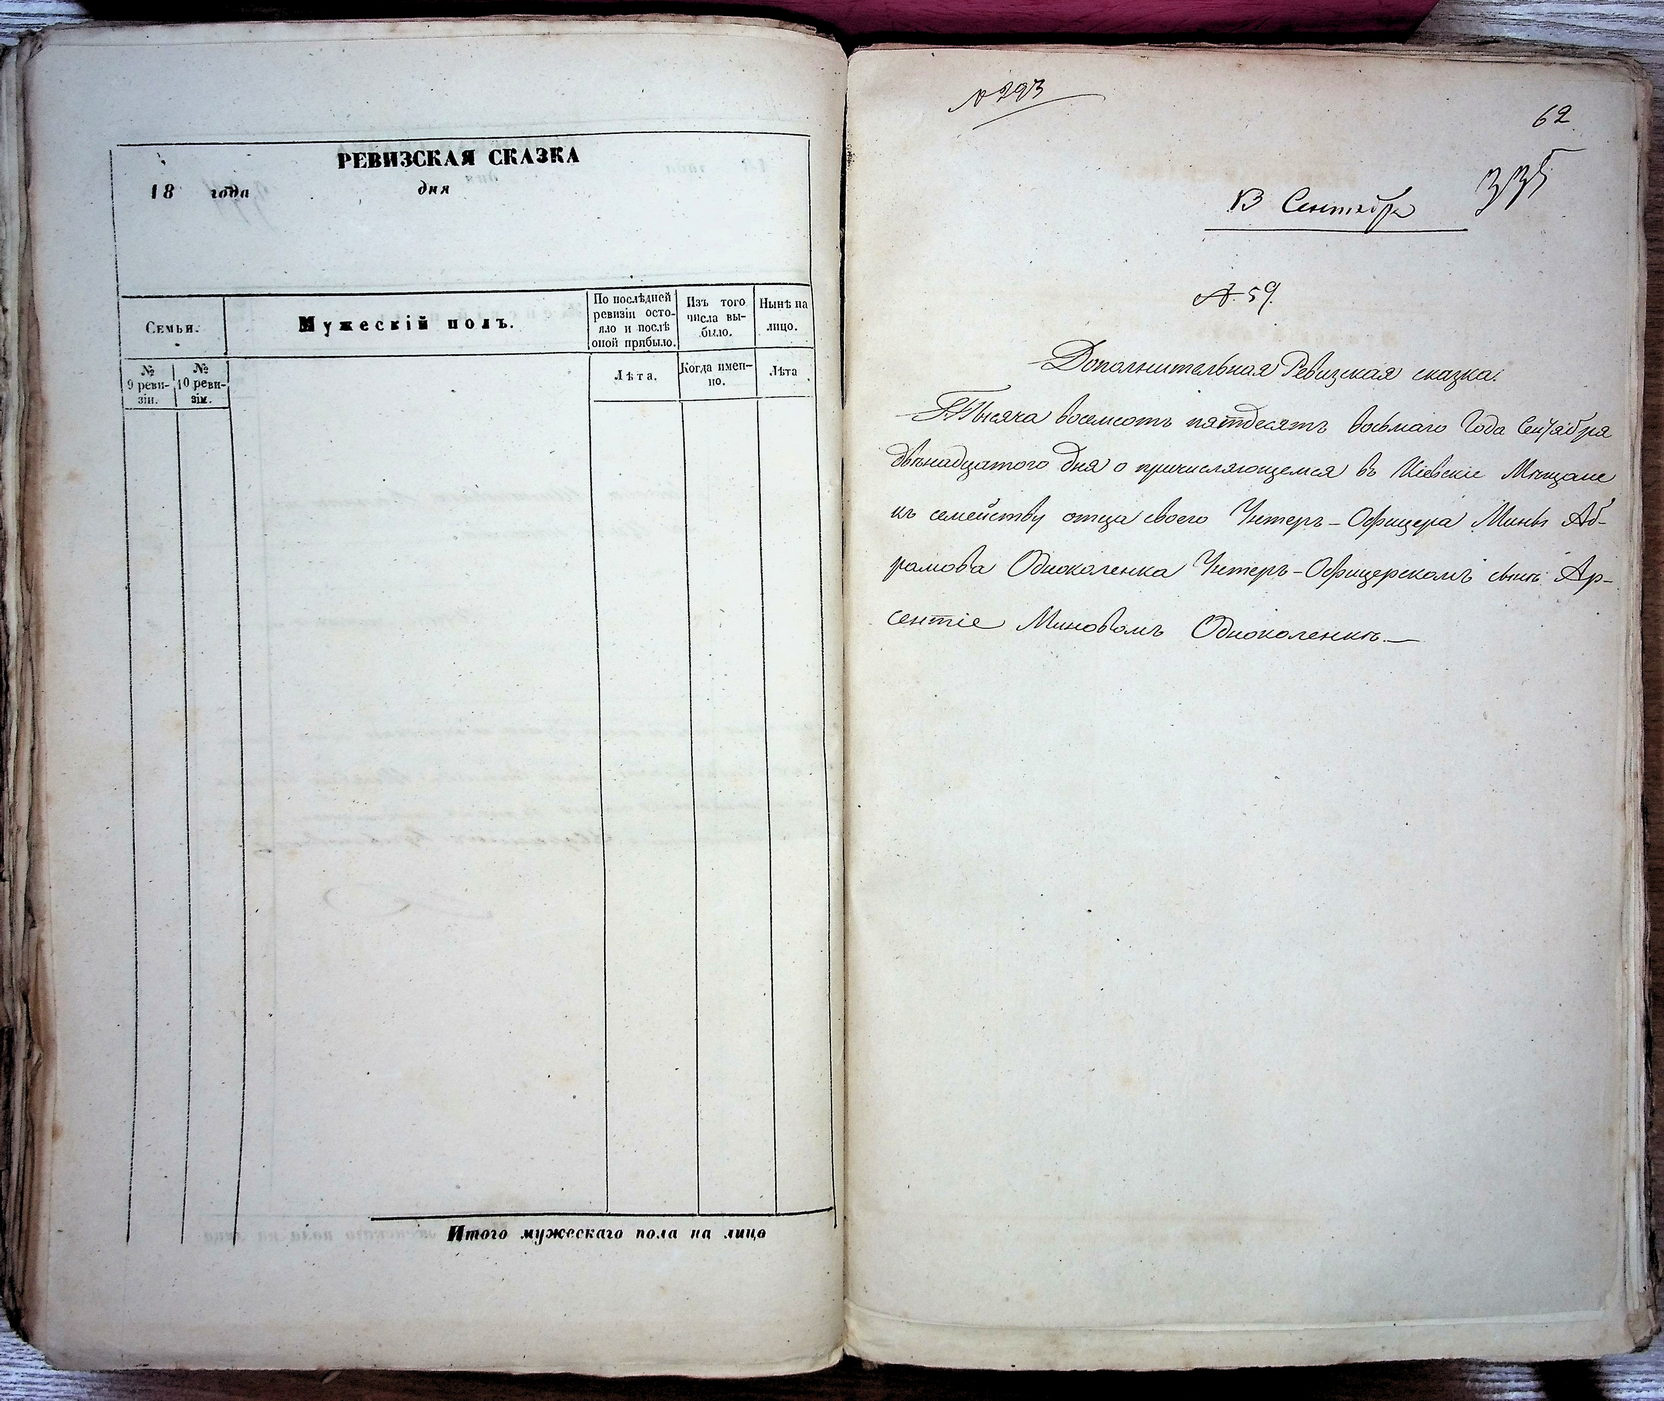 РЕВИЗСКАЯ СКАЗКА
18 года дня
Семьи.
Мужескій полъ.
По послѣдней
ревизіи осто-
яло и послѣ
оной прибыло.
Изъ того
числа вы-
было.
Нынѣ на
лицо.
№
9 реви-
зіи.
№
10 реви-
зіи.
Лѣта.
Когда имен-
но.
Лѣта
Итого мужескаго пола на лицо
№ 293
62
335
13 Сентября
№ 59.
Дополнительная Ревизская сказка.
Тысяча восемсотъ пятдесятъ восьмаго Года Сентября
двѣнадцатого дня о причисляющемся въ Кіевскіе Мѣщане
къ семейству отца своего Унтеръ-Офицера Мины Аб-
рамова Одноколенка Унтеръ-Офицерскомъ сынѣ Ар-
сентіе Миновомъ Одноколенкѣ.—